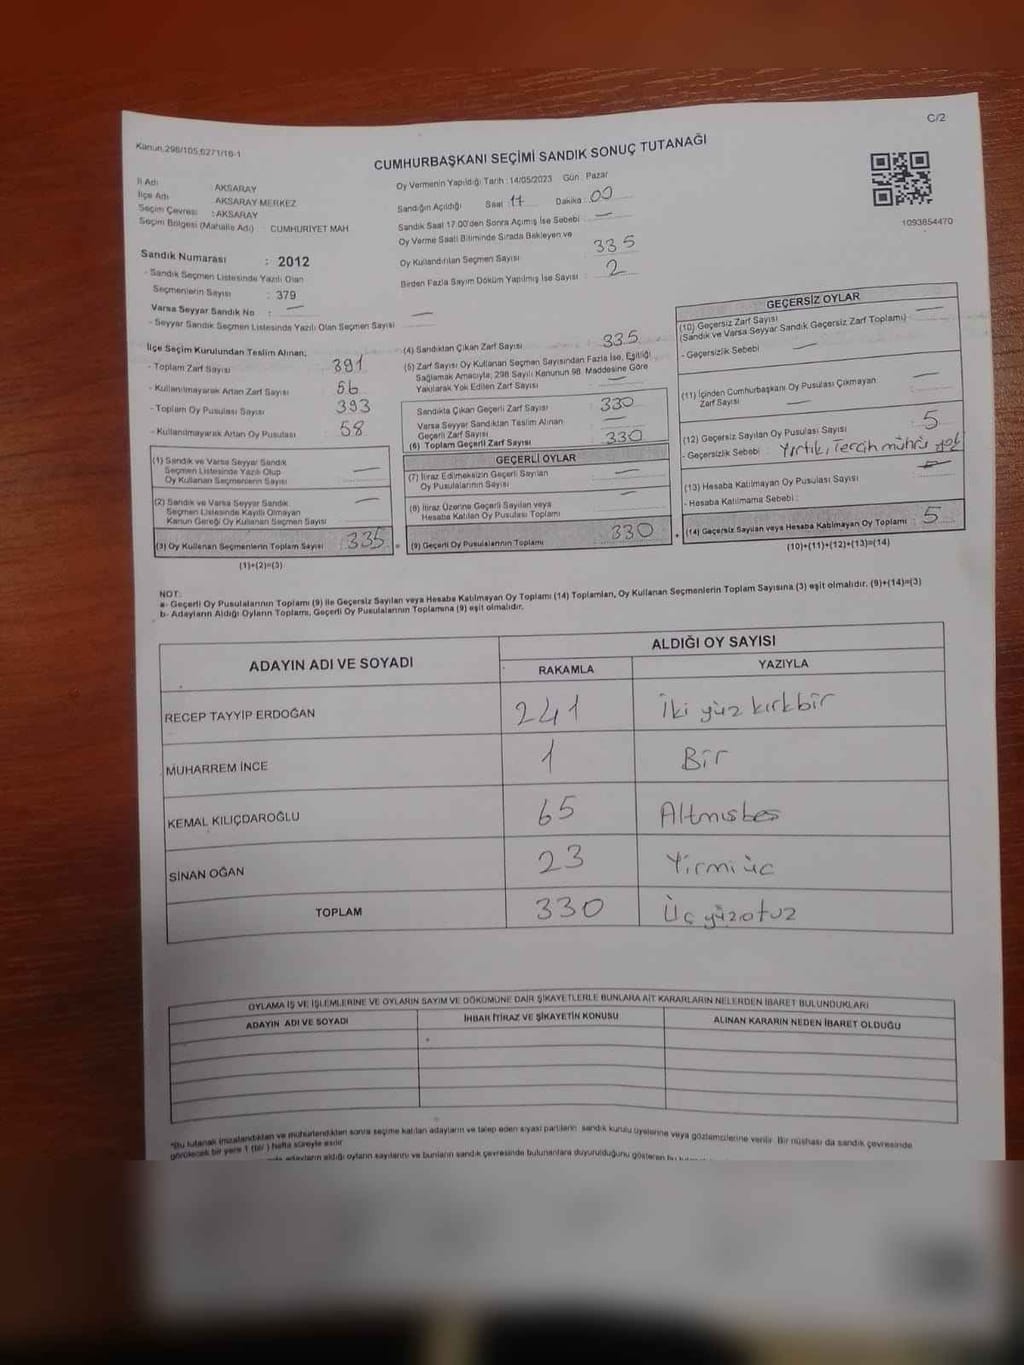 Kanun.298/105,6271/18-1
C/2
CUMHURBAŞKANI SEÇİMİ SANDIK SONUÇ TUTANAĞI
İl Adı : AKSARAY
İlçe Adı : AKSARAY MERKEZ
Seçim Çevresi : AKSARAY
Seçim Bölgesi (Mahalle Adı) CUMHURİYET MAH
Sandık Numarası : 2012
- Sandık Seçmen Listesinde Yazılı Olan
Seçmenlerin Sayısı : 379
Varsa Seyyar Sandık No : —
- Seyyar Sandık Seçmen Listesinde Yazılı Olan Seçmen Sayısı —
Oy Vermenin Yapıldığı Tarih : 14/05/2023 Gün : Pazar
Sandığın Açıldığı Saat 17 Dakika : 00
Sandık Saat 17.00'den Sonra Açımış İse Sebebi : —
Oy Verme Saati Bitiminde Sırada Bekleyen ve
Oy Kullandırılan Seçmen Sayısı : 335
Birden Fazla Sayım Döküm Yapılmış İse Sayısı : 2
1093854470
İlçe Seçim Kurulundan Teslim Alınan;
- Toplam Zarf Sayısı : 391
- Kullanılmayarak Artan Zarf Sayısı : 56
- Toplam Oy Pusulası Sayısı : 393
- Kullanılmayarak Artan Oy Pusulası : 58
(1) Sandık ve Varsa Seyyar Sandık
Seçmen Listesinde Yazılı Olup
Oy Kullanan Seçmenlerin Sayısı : —
(2) Sandık ve Varsa Seyyar Sandık
Seçmen Listesinde Kayıtlı Olmayan
Kanun Gereği Oy Kullanan Seçmen Sayısı : —
(3) Oy Kullanan Seçmenlerin Toplam Sayısı : 335
(1)+(2)=(3)
(4) Sandıktan Çıkan Zarf Sayısı : 335
(5) Zarf Sayısı Oy Kullanan Seçmen Sayısından Fazla İse, Eşitliği
Sağlamak Amacıyla, 298 Sayılı Kanunun 98. Maddesine Göre
Yakılarak Yok Edilen Zarf Sayısı : —
Sandıkta Çıkan Geçerli Zarf Sayısı : 330
Varsa Seyyar Sandıktan Teslim Alınan
Geçerli Zarf Sayısı : —
(6) Toplam Geçerli Zarf Sayısı : 330
GEÇERLİ OYLAR
(7) İtiraz Edilmeksizin Geçerli Sayılan
Oy Pusulalarının Sayısı : —
(8) İtiraz Üzerine Geçerli Sayılan veya
Hesaba Katılan Oy Pusulası Toplamı : —
(9) Geçerli Oy Pusulalarının Toplamı : 330
GEÇERSİZ OYLAR
(10) Geçersiz Zarf Sayısı
(Sandık ve Varsa Seyyar Sandık Geçersiz Zarf Toplamı) : —
- Geçersizlik Sebebi : —
(11) İçinden Cumhurbaşkanı Oy Pusulası Çıkmayan
Zarf Sayısı : —
(12) Geçersiz Sayılan Oy Pusulası Sayısı : 5
- Geçersizlik Sebebi : Yırtık, Tercih mührü yok
(13) Hesaba Katılmayan Oy Pusulası Sayısı : —
- Hesaba Katılmama Sebebi :
(14) Geçersiz Sayılan veya Hesaba Katılmayan Oy Toplamı : 5
(10)+(11)+(12)+(13)=(14)
NOT:
a- Geçerli Oy Pusulalarının Toplamı (9) ile Geçersiz Sayılan veya Hesaba Katılmayan Oy Toplamı (14) Toplamları, Oy Kullanan Seçmenlerin Toplam Sayısına (3) eşit olmalıdır. (9)+(14)=(3)
b- Adayların Aldığı Oyların Toplamı, Geçerli Oy Pusulalarının Toplamına (9) eşit olmalıdır.
ADAYIN ADI VE SOYADI
ALDIĞI OY SAYISI
RAKAMLA YAZIYLA
RECEP TAYYİP ERDOĞAN 241 İki yüz kırkbir
MUHARREM İNCE 1 Bir
KEMAL KILIÇDAROĞLU 65 Altmısbes
SİNAN OĞAN 23 Yirmi üc
TOPLAM 330 Üç yüzotuz
OYLAMA İŞ VE İŞLEMLERİNE VE OYLARIN SAYIM VE DÖKÜMÜNE DAİR ŞİKAYETLERLE BUNLARA AİT KARARLARIN NELERDEN İBARET BULUNDUKLARI
ADAYIN ADI VE SOYADI İHBAR İTİRAZ VE ŞİKAYETİN KONUSU ALINAN KARARIN NEDEN İBARET OLDUĞU
*Bu tutanak imzalandıktan ve mühürlendikten sonra seçime katılan adayların ve talep eden siyasi partilerin sandık kurulu üyelerine veya gözlemcilerine verilir. Bir nüshası da sandık çevresinde
görülecek bir yere 1 (bir) hafta süreyle asılır
adayların aldığı oyların sayılarını ve bunların sandık çevresinde bulunanlara duyurulduğunu gösteren bu